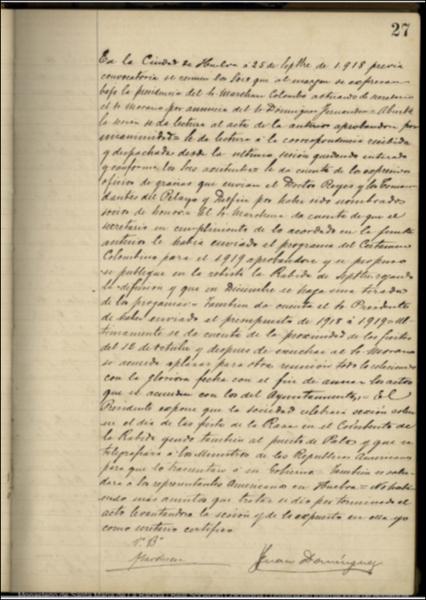 27
En la Ciudad de Huelva á 25 de Septbre de 1918 previa
convocatoria se reunen los Sres que al margen se expresan
bajo la presidencia del Sr Marchena Colombo actuando de secretario
el Sr Moreno por ausencia del Sr Dominguez Fernandez = Abierta
la sesion se da lectura al acta de la anterior aprobandose por
unanimidad = Se da lectura á la correspondencia recibida
y despachada desde la ultima sesión quedando enterados
y conforme los Sres asistentes = Se da cuenta de los expresivos
oficios de gracias que envian el Doctor Reyes y los Coman
dantes del Pelayo y Delfin por haber sido nombrados
socios de honor = El Sr Marchena da cuenta de que el
secretario en cumplimiento de lo acordado en la Junta
anterior le habia enviado el programa del Certamen
Colombino para el 1919 aprobandose y se propuso
se publique en la revista la Rabida de Septbre
la difusion y que en Diciembre se haga una tirada
de programas = Tambien da cuenta el Sr Presidente
de haber enviado el presupuesto de 1918 á 1919 = Ul
timamente se da cuenta de la proximidad de las fiestas
del 12 de octubre y despues de escuchar al Sr Moreno
se acuerda aplazar para otra reunion todo lo relacionado
con la gloriosa fecha con el fin de aunar los actos
que se acuerden con los del Ayuntamiento = El
Presidente expone que la sociedad celebrará sesión solem
ne el dia de la fiesta de la Raza en el Convento de
la Rabida yendo tambien al puerto de Palos y que se
telegrafiara á los Ministros de las Republicas Americanas
para que lo trasmitan á su Gobierno = Tambien se salu
dara á los representantes Americanos en Huelva = No habi
endo más asuntos que tratar se dio por terminado el
acto levantandose la sesión y de lo expuesto en ella yo
como secretario certifico
Vº Bº
Marchena
Juan Dominguez